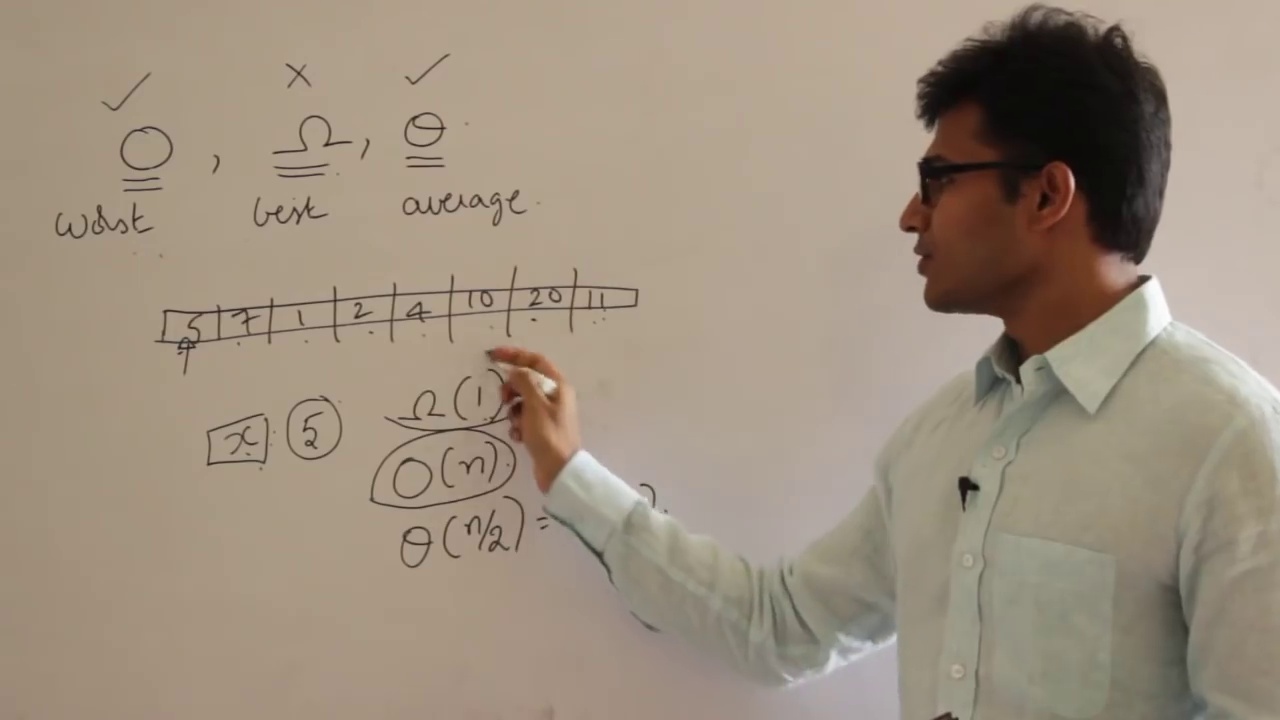 ✓ × ✓
O , Ω , θ
worst best average
5 7 1 2 4 10 20 11
x : 5 Ω(1)
O(n)
θ(n/2) =